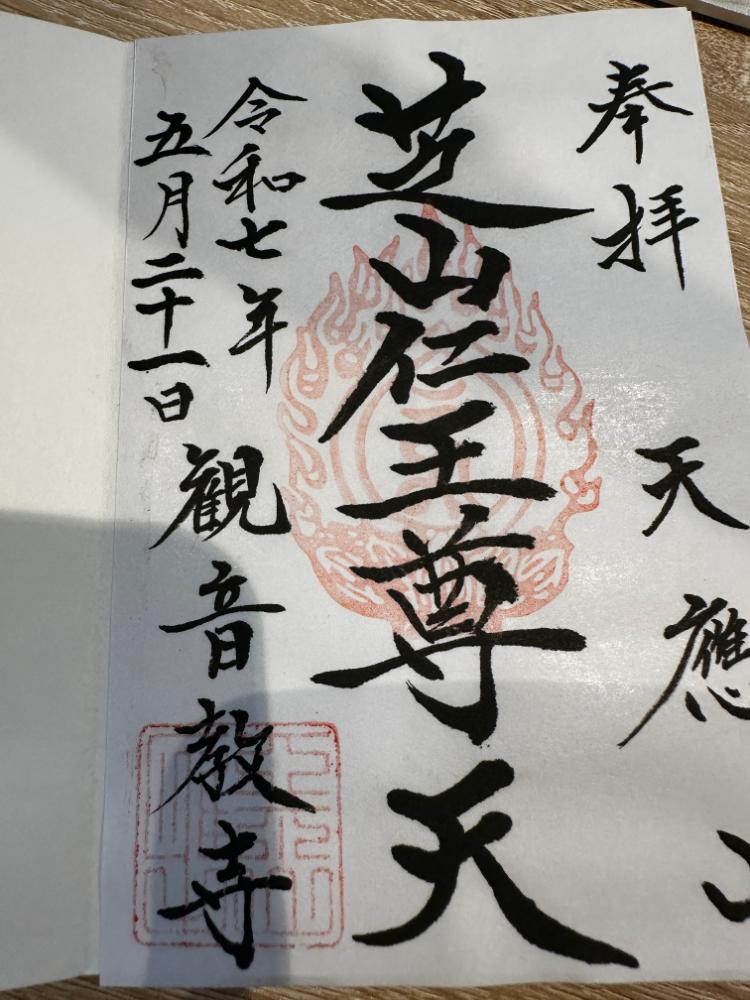 奉拝
天應山
芝山仁王尊天
令和七年
五月二十一日
観音教寺